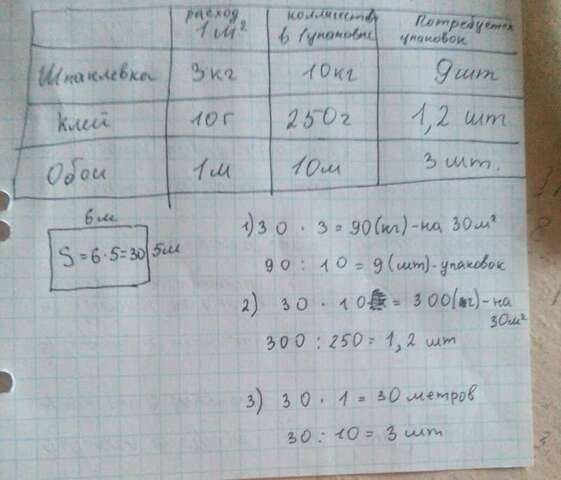 расход 1 м² | количество в 1 упаковке | Потребуется упаковок
Шпаклевка | 3 кг | 10 кг | 9 шт
Клей | 10 г | 250 г | 1,2 шт
Обои | 1 м | 10 м | 3 шт.
6 м
S = 6 · 5 = 30
5 м
1) 30 · 3 = 90 (кг) - на 30 м²
90 : 10 = 9 (шт) - упаковок
2) 30 · 10 = 300 (г) - на
30 м²
300 : 250 = 1,2 шт
3) 30 · 1 = 30 метров
30 : 10 = 3 шт